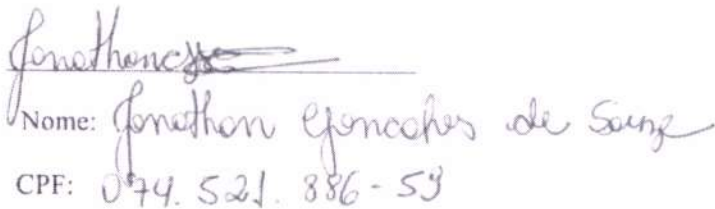 Jonathan
Nome: Jonathan Goncalves de Souza
CPF: 074.521.886-59